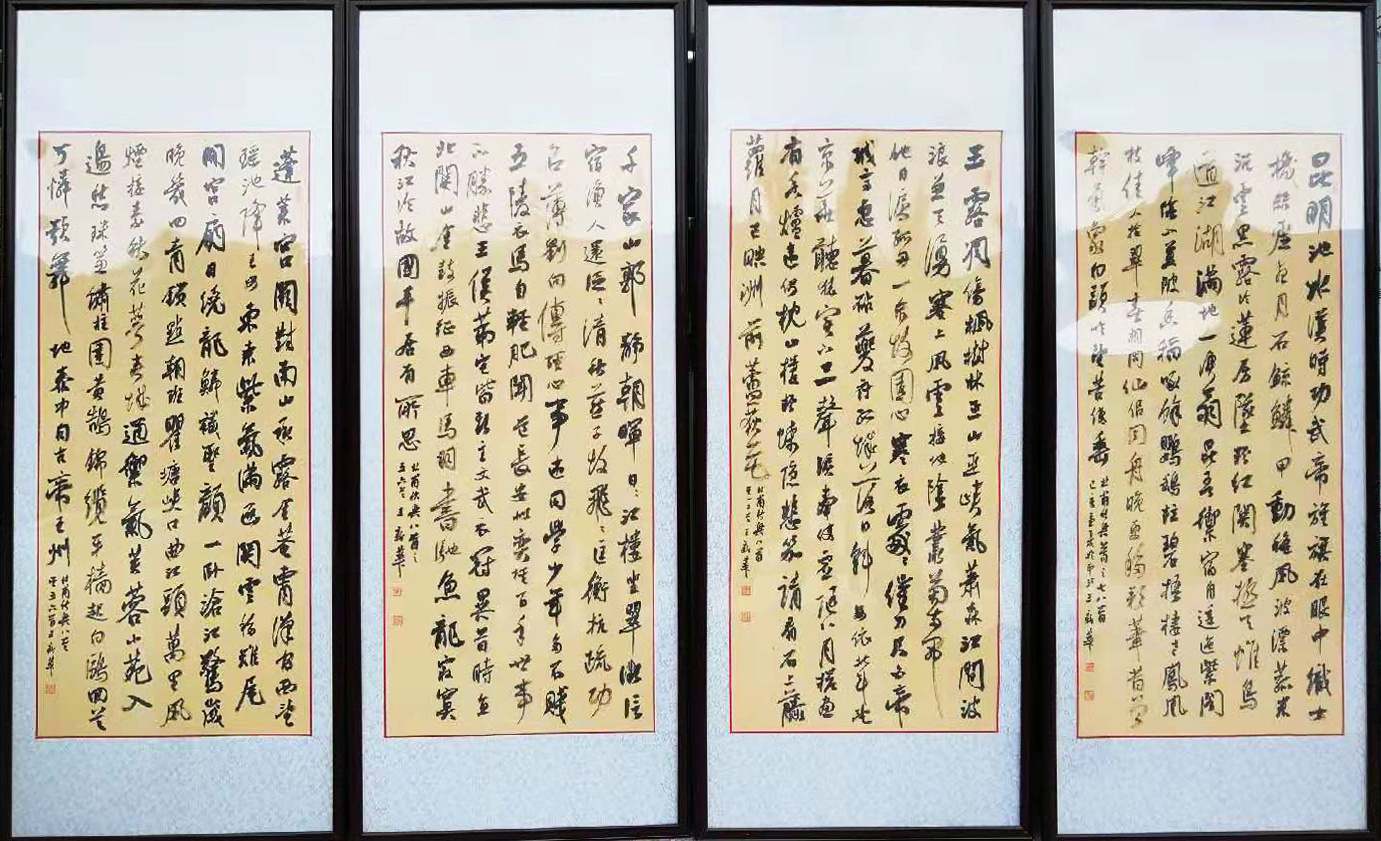 昆明池水漢時功武帝旌旗在眼中織女
機絲虛夜月石鯨鱗甲動秋風波漂菰米
沉雲黑露冷蓮房墜粉紅關塞極天惟鳥
道江湖滿地一漁翁昆吾禦宿自逶迤紫閣
峰陰入渼陂香稻啄餘鸚鵡粒碧梧棲老鳳凰
枝佳人拾翠春相問仙侶同舟晚更移彩筆昔曾
幹氣象白頭吟望苦低垂
杜甫秋興八首之七八首
王新華
玉露凋傷楓樹林巫山巫峽氣蕭森江間波
浪兼天湧塞上風雲接地陰叢菊兩開
他日淚孤舟一系故園心寒衣處處催刀尺白帝
城高急暮砧夔府孤城落日斜每依北斗望
京華聽猿實下三聲淚奉使虛隨八月槎畫
省香爐違伏枕山樓粉堞隱悲笳請看石上藤
蘿月已映洲前蘆荻花
杜甫秋興八首
之一二首王新華
千家山郭靜朝暉日日江樓坐翠微信
宿漁人還泛泛清秋燕子故飛飛匡衡抗疏功
名薄劉向傳經心事違同學少年多不賤
五陵衣馬自輕肥聞道長安似弈棋百年世事
不勝悲王侯第宅皆新主文武衣冠異昔時直
北關山金鼓振征西車馬羽書馳魚龍寂寞
秋江冷故國平居有所思
杜甫秋興八首之
王新華
蓬萊宮闕對南山承露金莖霄漢間西望
瑤池降王母東來紫氣滿函關雲移雉尾
開宮扇日繞龍鱗識聖顏一臥滄江驚歲
晚幾回青鎖點朝班瞿塘峽口曲江頭萬里風
煙接素秋花萼夾城通禦氣芙蓉小苑入
邊愁珠簾繡柱圍黃鵠錦纜牙檣起白鷗回首
可憐歌舞地秦中自古帝王州
杜甫秋興八首
之五六首王新華